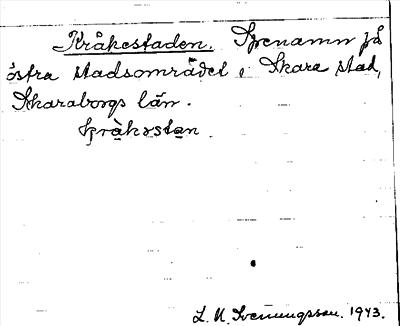 Kråkestaden. Öknamn på
östra stadsområdet i Skara stad,
Skaraborgs län.
kràkɤstan.
S. N. Svenungsson. 1943.